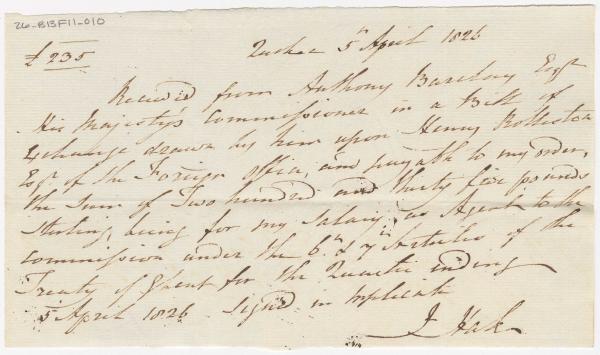 26-B13F11-010
£235 Quebec 5th April 1826
Received from Anthony Barclay Esqr
His Majesty's Commissioner in a Bill of
Exchange drawn by him upon Henry Rolleston
Esqr. of the Foreign Office, and payable to my order,
the Sum of Two hundred and thirty five pounds
Sterling, being for my Salary as Agent to the
Commission under the 6th & 7 Articles of the
Treaty of Ghent for the Quarter ending
5 April 1826 Signed in triplicate
J Hale